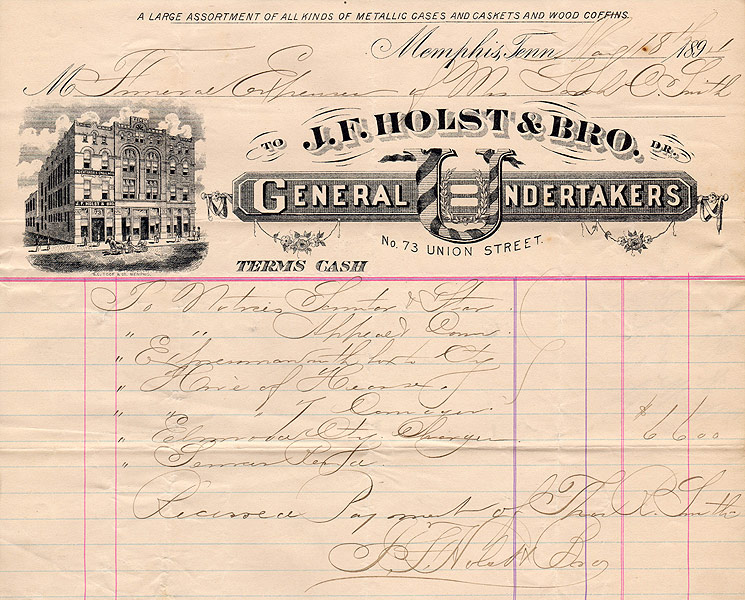 A LARGE ASSORTMENT OF ALL KINDS OF METALLIC CASES AND CASKETS AND WOOD COFFINS.
Memphis, Tenn May 18th 189
M Funeral Expenses of Mrs C. Smith
TO J. F. HOLST & BRO. DR.
GENERAL UNDERTAKERS
No. 73 UNION STREET.
TERMS CASH
J. F. HOLST & BRO
To Notices & Star
" " Appeal Com
" Expressman with box to Cty
" Hire of Hearse
" " " 7
" Elmwood Cty. Charges $66 00
"
Received Payment of Thos R. Smith
J. F. Holst & Bro